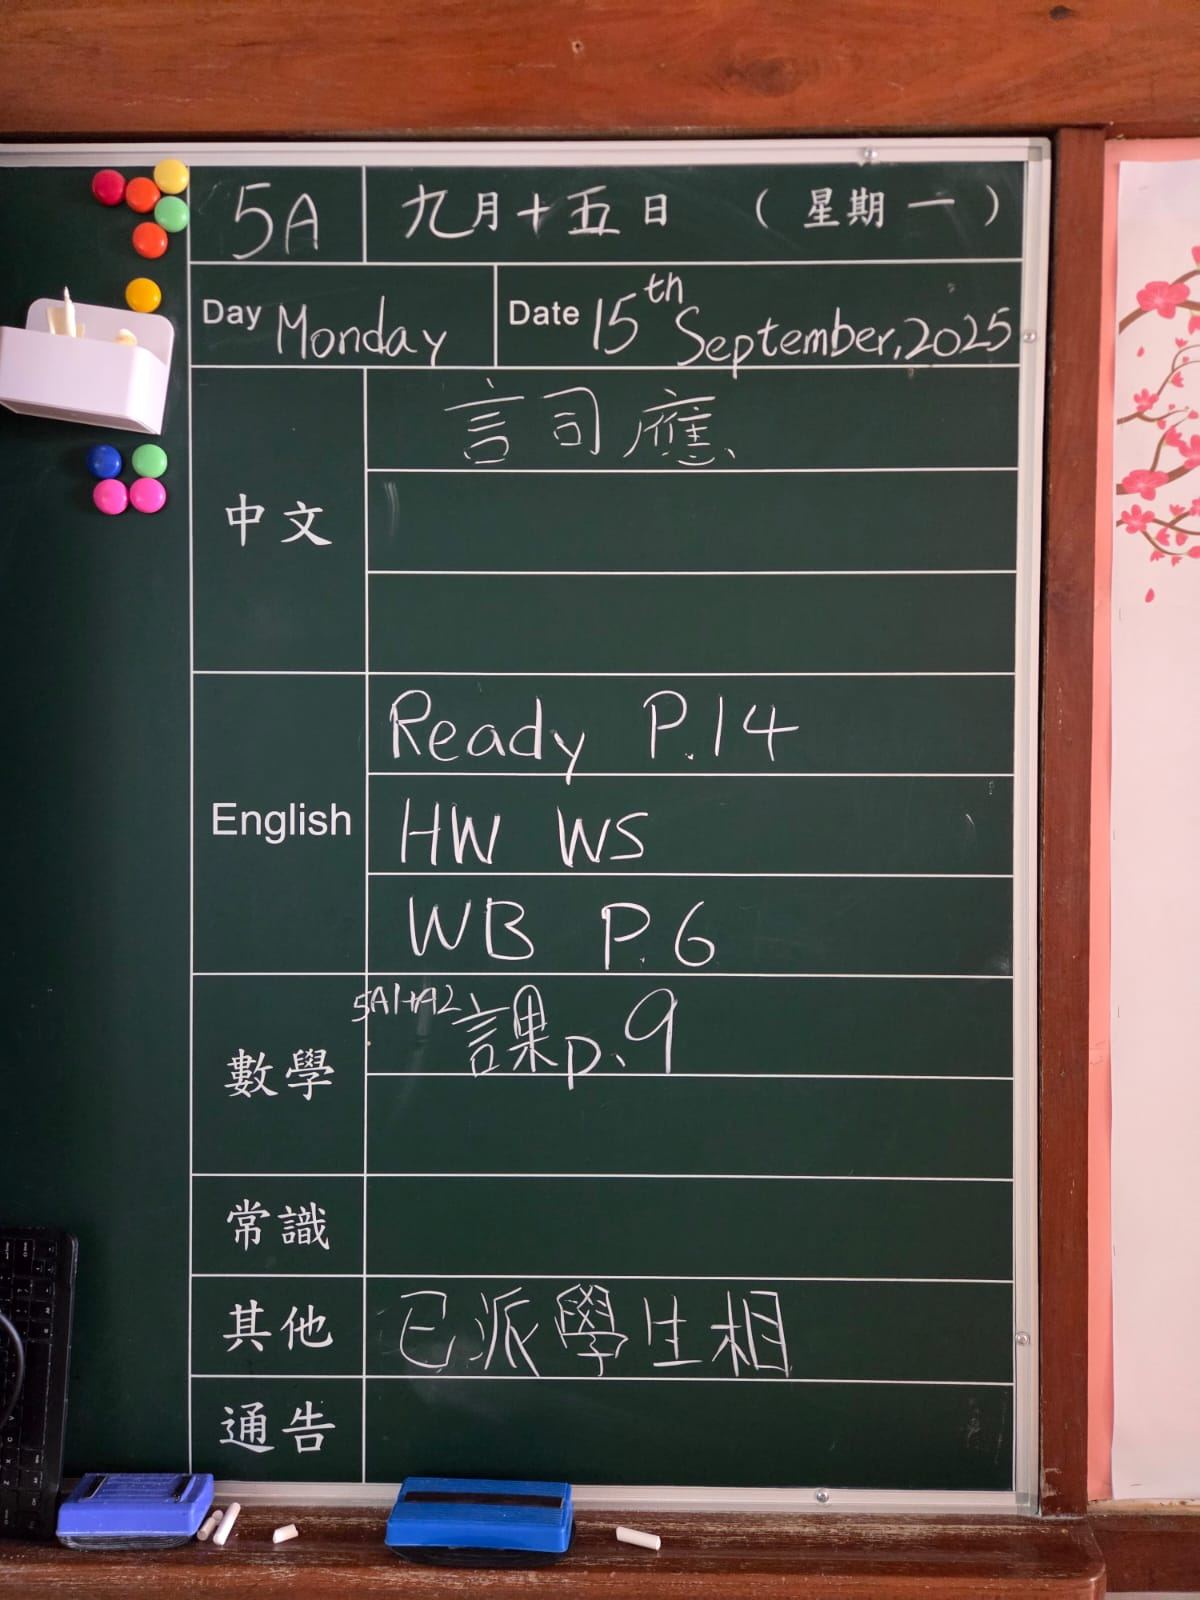 5A 九月十五日 （星期一）
Day Monday Date 15th September, 2025
中文 詞應
English
Ready P.14
HW WS
WB P.6
數學 5A1+A2 課p.9
常識
其他 已派學生相
通告